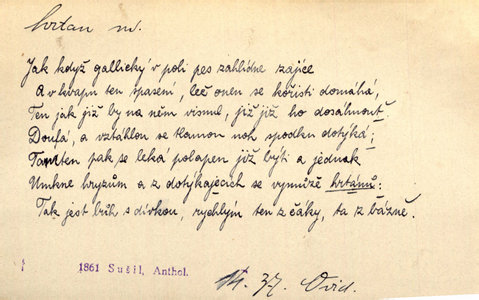 hrtan m.
Jak když gallický v poli pes zahlídne zajíce
A v kvapu ten spasení, leč onen se kořisti domáhá,
Ten jak již by na něm visnul, již již ho dosáhnout
Doufá, a vztáhlou se tlamou noh spodku dotýká;
Tamten pak se leká polapen již býti a jednak
Umkne hryzům a z dotýkajících se vymůže hrtánů:
Tak jest bůh s dívkou, rychlým ten z čáky, ta z bázně.
1861 Sušil, Anthol.
37. Ovid.